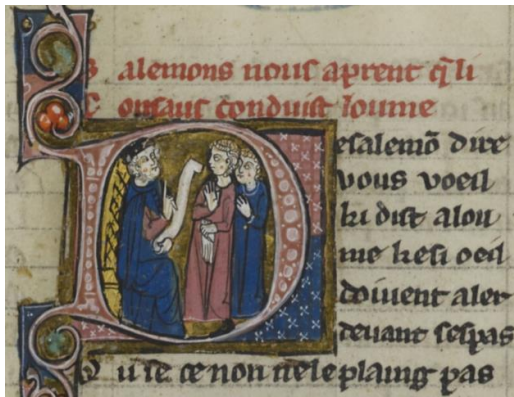 Salemons nous aprent q̃ li
Consaus conduist loume
De salemō dire
vous voeil
ki dist a lou
me ke si oeil
doivent aler
devant ses pas
Qui ce non ne le plaing pas